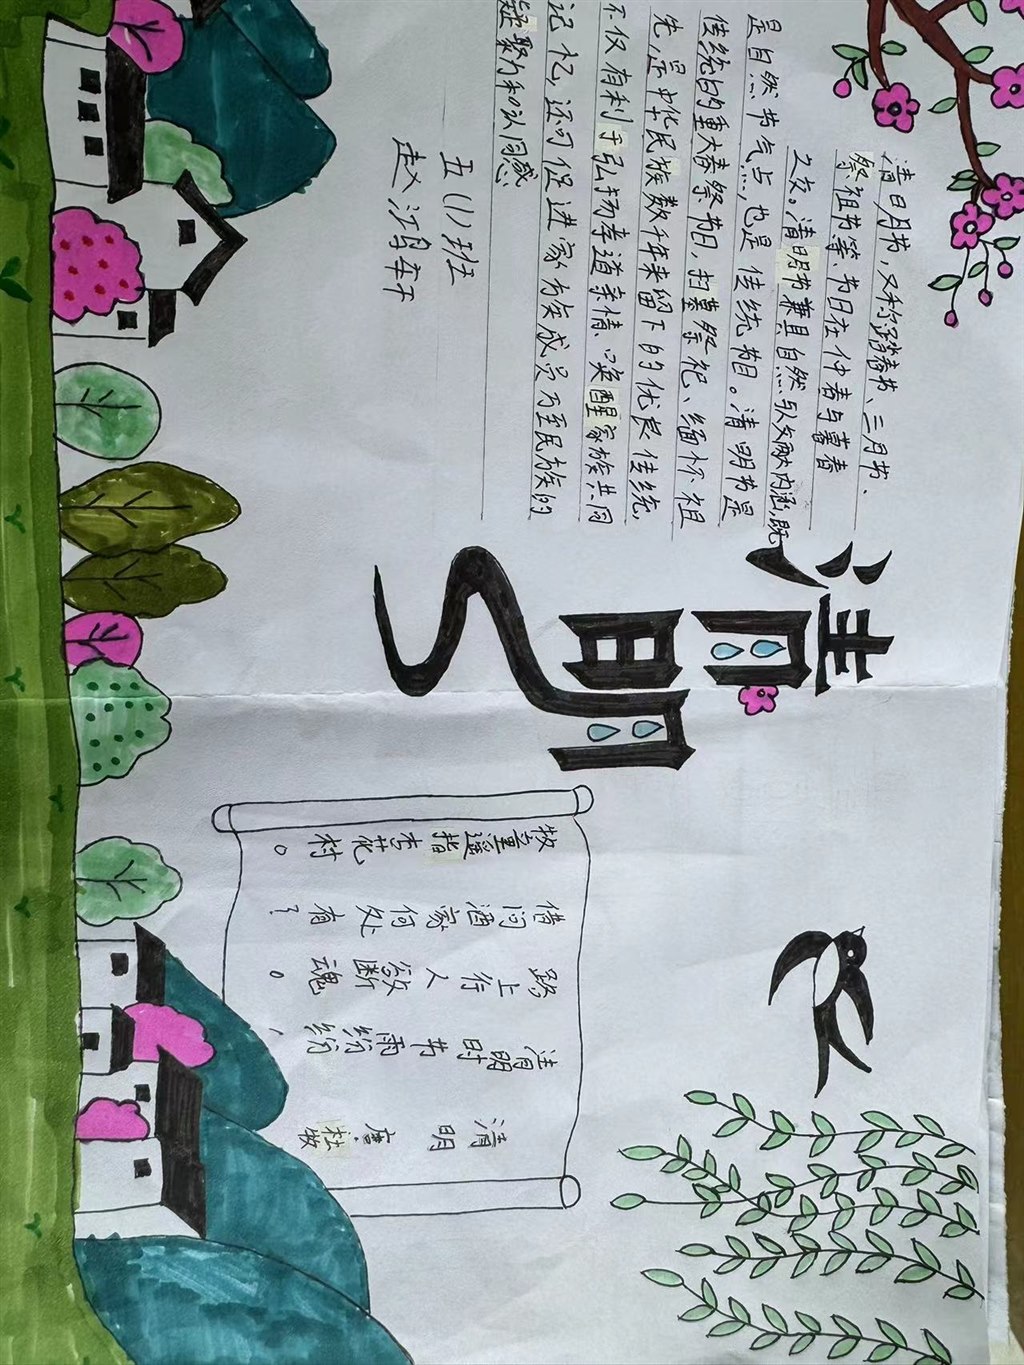 清明
清明节，又称踏青节、三月节、
祭祖节等、节日在仲春与暮春
之交。清明节兼具自然与人文两大内涵，既
是自然节气点，也是传统节日。清明节是
传统的重大春祭节日，扫墓祭祀、缅怀祖
先，是中华民族数千年来留下的优良传统，
不仅有利于弘扬孝道亲情、唤醒家族共同
记忆，还可促进家族成员乃至民族的
凝聚力和认同感
五（1）班
清明 唐 杜牧
清明时节雨纷纷，
路上行人欲断魂。
借问酒家何处有？
牧童遥指杏花村。